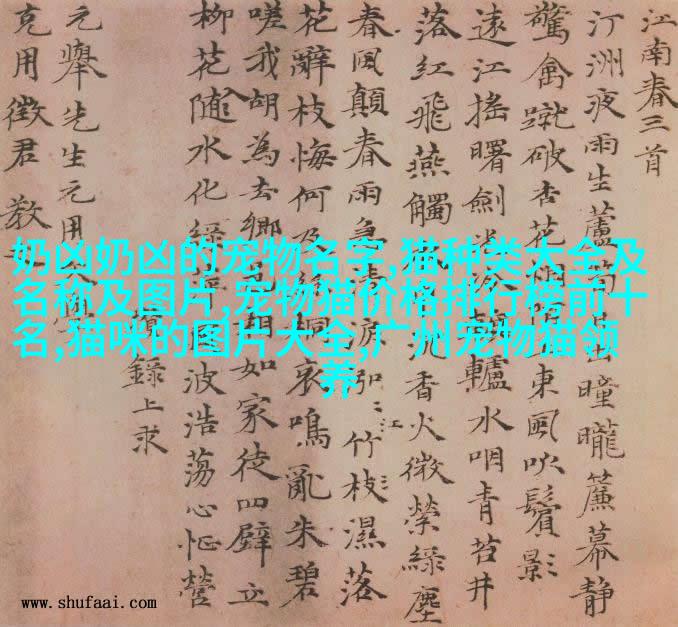 江南春三首
汀洲夜雨生蘆笋日出曈曨簾幕静
驚禽蹴破杏花烟陌上東風吹鬢影
遠江搖曙劍光寒轆轤水咽青苔井
落紅飛燕觸衣巾沉香火微縈綠塵
春風顛春雨急清淚泓泓江竹枝濕落
花辭枝悔何及絲桐哀鳴亂朱碧
嗟我胡為去鄉邑相如家徒四壁立
柳花隨水化綠萍風波浩蕩心怔營
瓚錄上求
元舉先生元用
克用徵君 教
奶凶奶凶的宠物名字,猫种类大全及
名称及图片,宠物猫价格排行榜前十
名,猫咪的图片大全,广州宠物猫领
养
www.shufaai.com